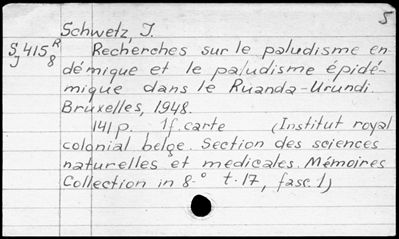 5
Schwetz, J.
S 415 R Recherches sur le paludisme en
J 8 démique et le paludisme épidé-
mique dans le Ruanda-Urundi.
Bruxelles, 1948.
141 p. 1 f. carte (Institut royal
colonial belge. Section des sciences
naturelles et medicales. Mémoires
Collection in 8.° t. 17, fasc. 1)